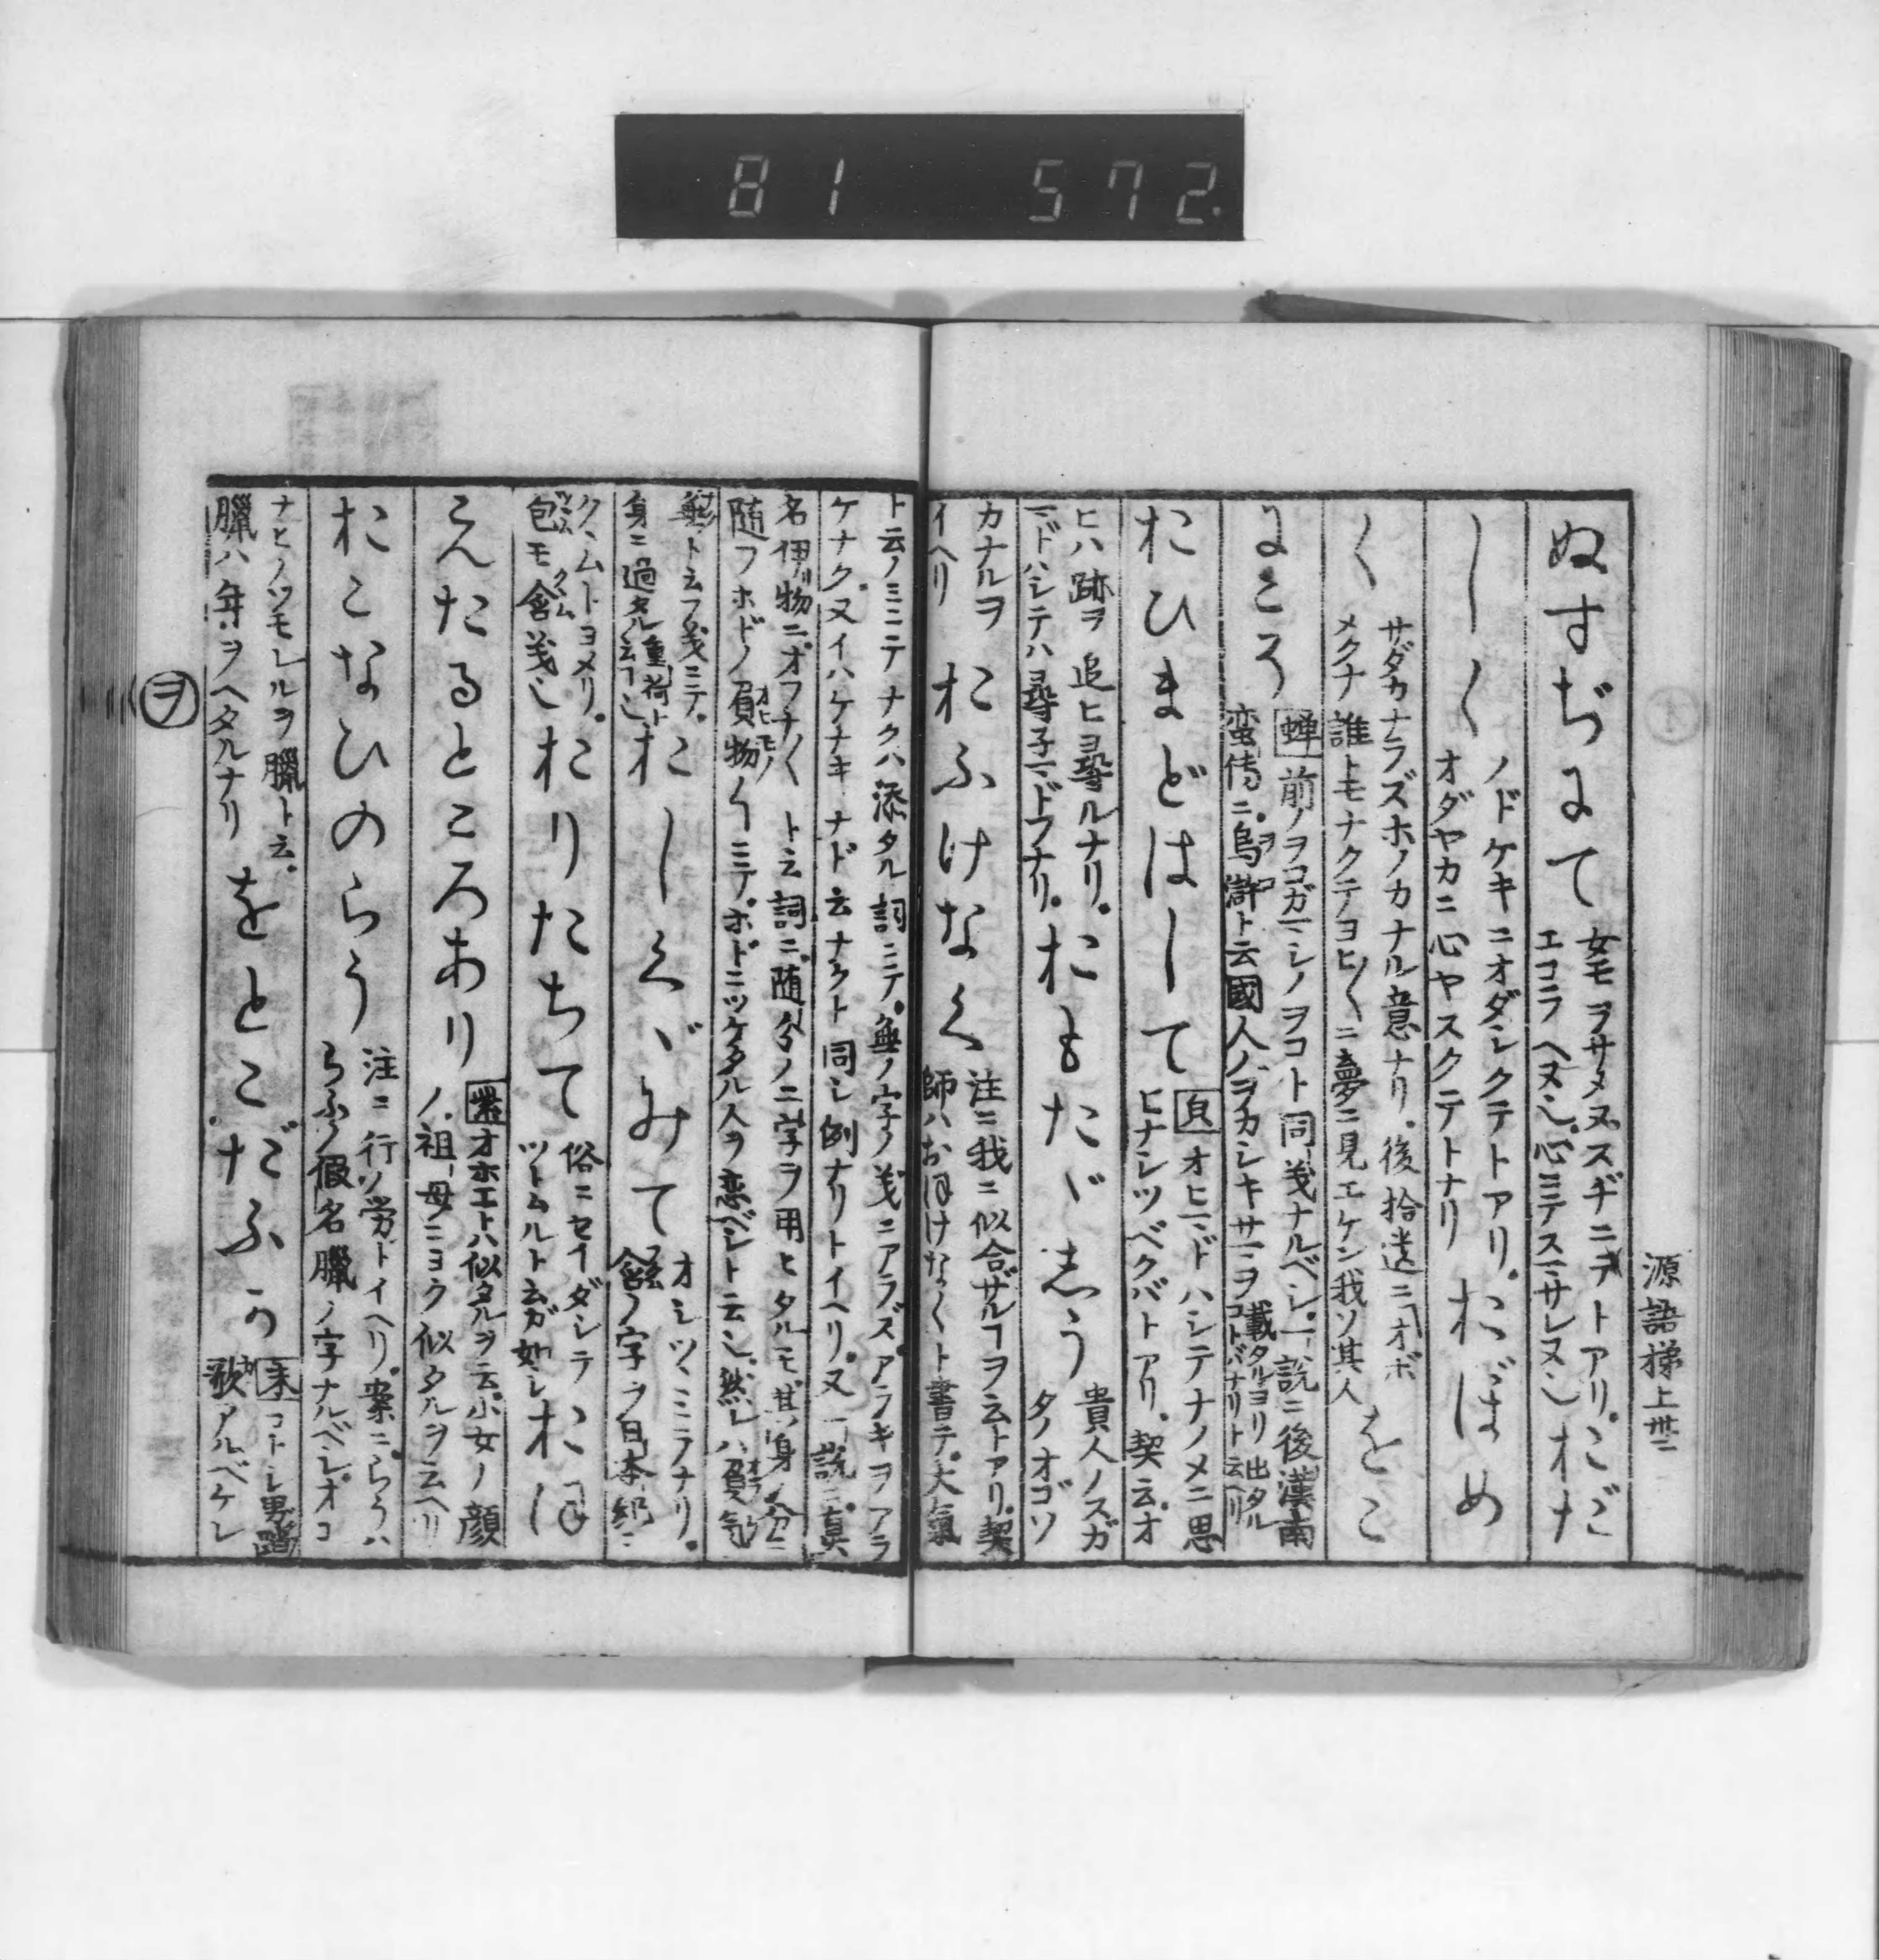 81 572.
源語梯上 卅二
ぬすぢにて
女モヲサメヌスヂニテトアリ
エコラヘヌ也心ミテスマサレヌ也
おだ
しく
ノドケキニオダシクテトアリ
オダヤカニ心ヤスクテトナリ
おぼめ
く
サダカナラズホノカナル意ナリ後拾遺ニオボ
メクナ誰トモナクテヨヒ〳〵ニ夢ニ見エケン我ソ其人
をこ
にころ
蝉 前ノヲコガマシノヲコト同義ナルベシ一説ニ後漢南
蛮傳ニ烏滸ト云國人ノヲカシキサマヲ載タルヨリ出タル
コトバナリト云ヘリ
おひまどはして
オヒマドハシテナノメニ思
ヒナシツベクバトアリ契云オ
ヒハ跡ヲ追ヒ尋ルナリ
マドハシテハ尋子マドフナリ
おもたゞしう
貴人ノスガ
タノオゴソ
カナルヲ
イヘリ
おふけなく
注ニ我ニ似合ザルコヲ云トアリ契
師ハおほけなくト書テ大氣
ト云ノミニテナクハ添タル詞ニテ無ノ字ノ義ニアラズアラキヲアラ
ケナク又イハケナキナド云ナクト同シ例ナリトイヘリ又一説ニ真
名伊物ニオフナ〳〵ト云詞ニ随分ノ二字ヲ用ヒタルモ其身ノ分ニ
随フホドノ負物ト云ミテホドニツケタル人ヲ恋ベシト云也然レハ負気
無ト云フ義ニテ
身ニ過タル重荷ト云フ也
おしくゝみて
オシツヽミテナリ
含ノ字ヲ日本紀ニ
クヽムトヨメリ
包モ含義也
おりたちて
俗ニセイダシテ
ツトムルト云ガ如シ
おほ
えたるところあり
紫 オホエトハ似タルヲ云小女ノ顔
ノ祖母ニヨク似タルヲ云ヘリ
おこなひのらう
注ニ行ノ労トイヘリ案ニらうハ
らふノ假名臘ノ字ナルベシオコ
ナヒノツモレルヲ臘ト云
臘ハ年ヲヘタルナリ
をとこだふか
末 コトシ男踏
歌アルベケレ
ヲ